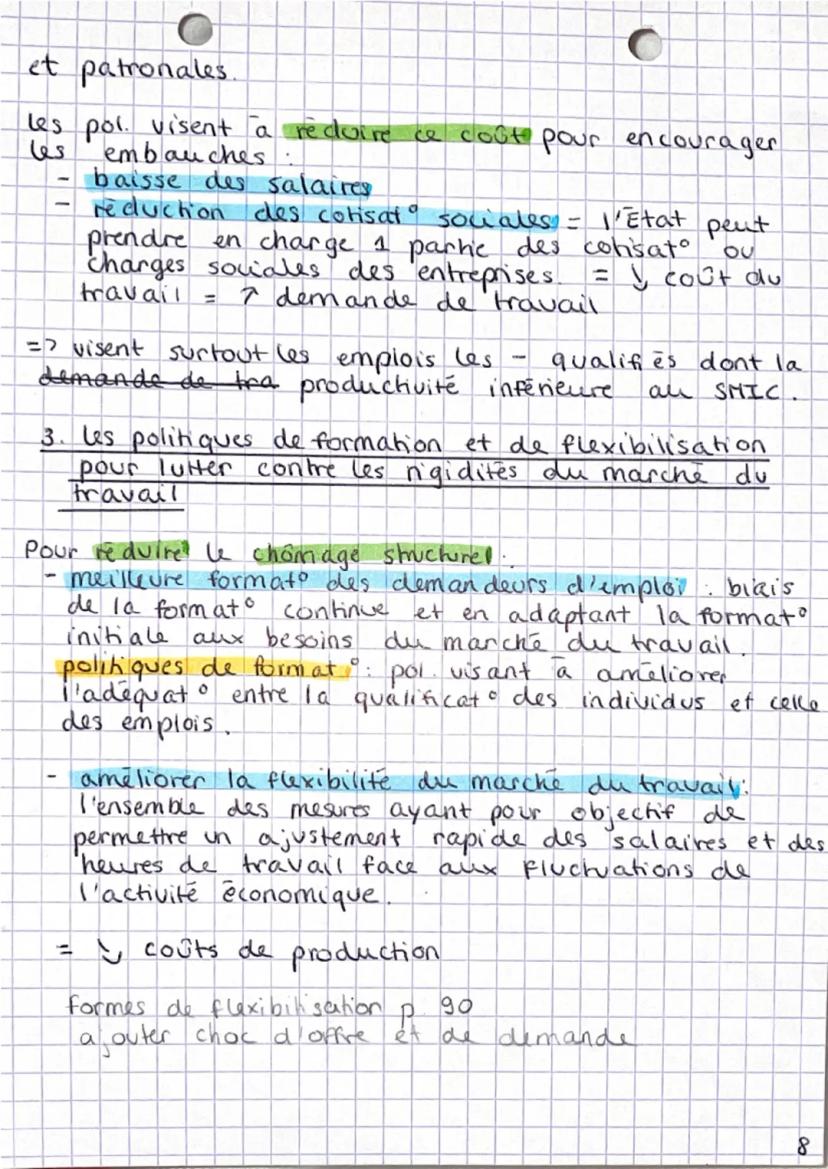 et patronales.
Les pol. visent à réduire ce coût pour encourager
les embauches :
- baisse des salaires
- réduction des cotisat° sociales = l'Etat peut
prendre en charge 1 partie des cotisat° ou
charges sociales des entreprises. = ↓ coût du
travail = ↗ demande de travail
=> visent surtout les emplois les - qualifiés dont la
demande de tra productivité inférieure au SMIC.
3. Les politiques de formation et de flexibilisation
pour lutter contre les rigidités du marché du
travail
Pour réduire le chômage structurel :
- meilleure format° des demandeurs d'emploi : biais
de la format° continue et en adaptant la format°
initiale aux besoins du marché du travail.
politiques de format° : pol. visant à améliorer
l'adéquat° entre la qualificat° des individus et celle
des emplois.
- améliorer la flexibilité du marché du travail :
l'ensemble des mesures ayant pour objectif de
permettre un ajustement rapide des salaires et des
heures de travail face aux fluctuations de
l'activité économique.
= ↘ coûts de production
formes de flexibilisation p. 90
ajouter choc d'offre et de demande
8